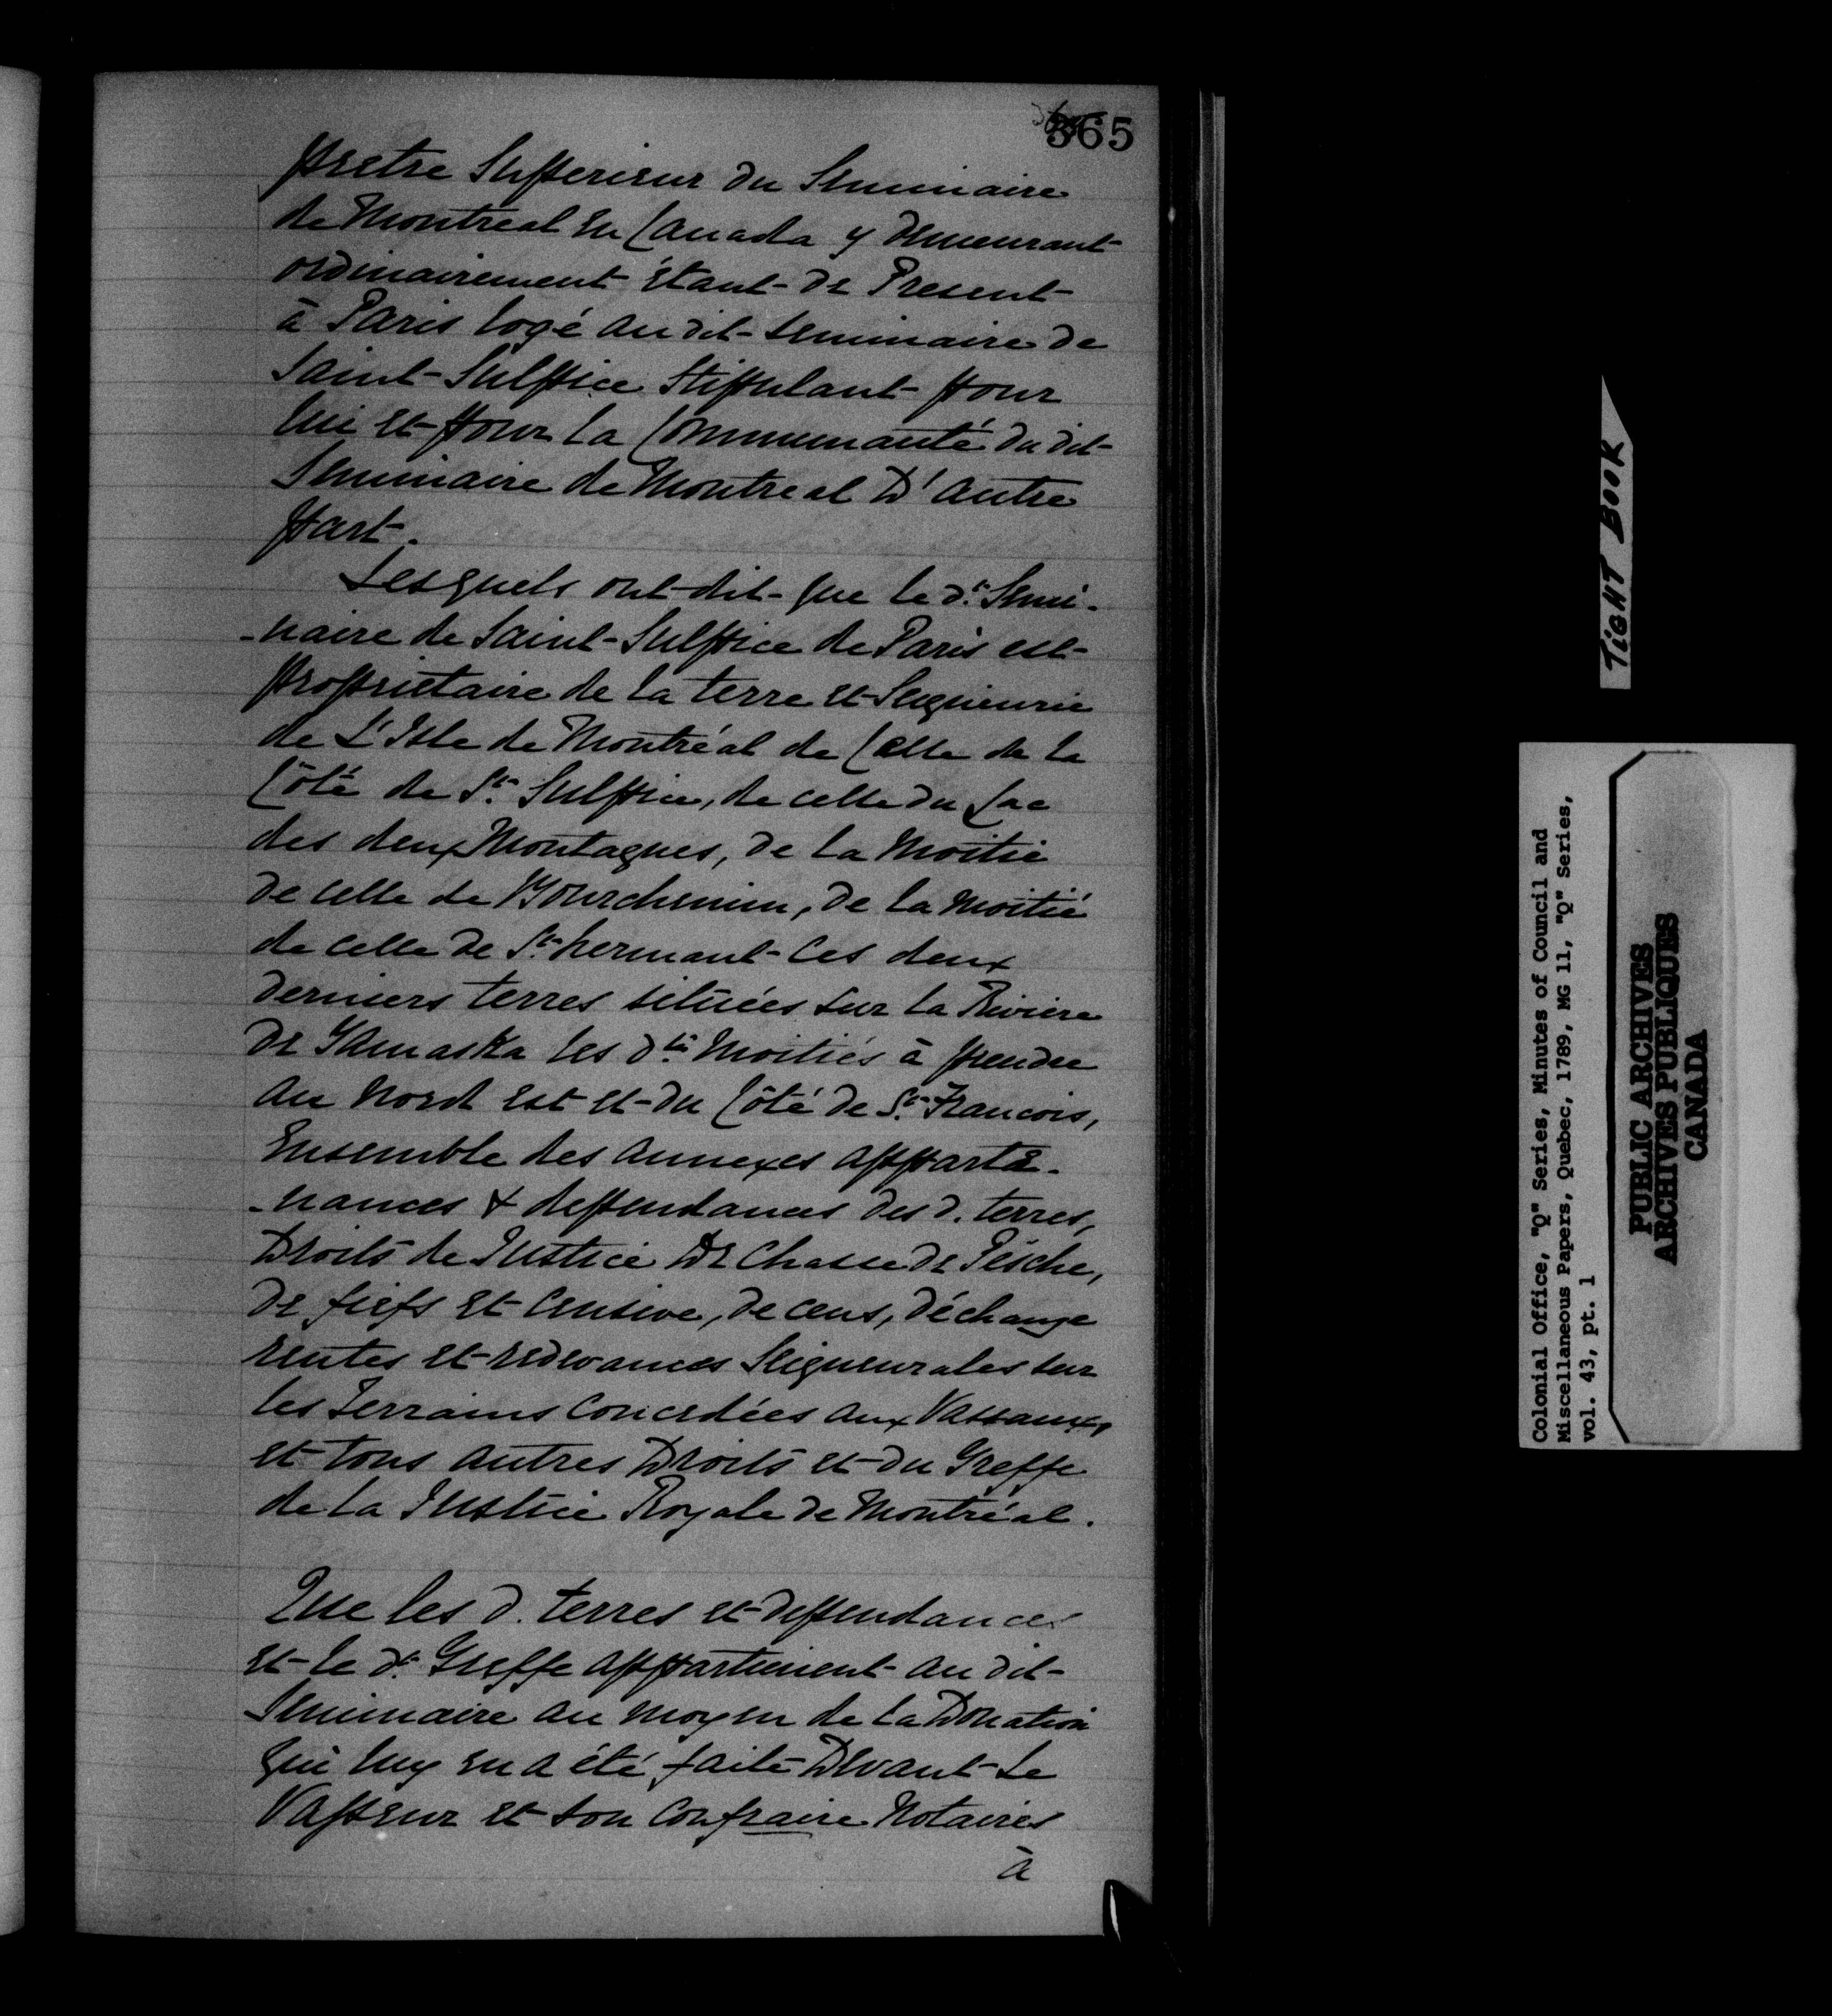 365
pretre Superieur du Seminaire
de Montreal En Canada y demeurant
ordinairement étant de Present
à Paris logé au dit seminaire de
Saint-Sulpice Stipulant pour
lui et pour la Communauté du dit
Seminaire de Montreal D'autre
part.
Lesquels ont dit que le dt. Semi-
-naire de Saint-Sulpice de Paris est
proprietaire de la terre et Seigneurie
de L'Isle de Montréal de Celle de la
Côté de St. Sulpice, de celle du Lac
des deux Montagnes, de la Moitié
de celle de Bourchemin, de la Moitié
de celle de St. hermant Ces deux
derniers terres situées sur la Riviere
de Yamaska les dtes Moitiés à prendre
au Nord Est et du Côté de St. Francois,
Ensemble des annexes apparte-
-nances & dependances des d. terres,
Droits de Justice De Chasse de Pesche,
de fiefs et Censive, de cens, déchange
rentes et redevances Seigneurales sur
les Terrains Concedées aux Vassaux,
et tous autres Droits et du Greffe
de la Justice Royale de Montréal.
Que les d. terres et dependances
et le dt. Greffe appartiennent au dit
Seminaire au moyen de la Donation
qui luy en a été faite Devant Le
Vasseur et son Confraire Notaires
à
TIGHT BOOK
Colonial Office, "Q" Series, Minutes of Council and
Miscellaneous Papers, Quebec, 1789, MG 11, "Q" Series,
vol. 43, pt. 1
PUBLIC ARCHIVES
ARCHIVES PUBLIQUES
CANADA